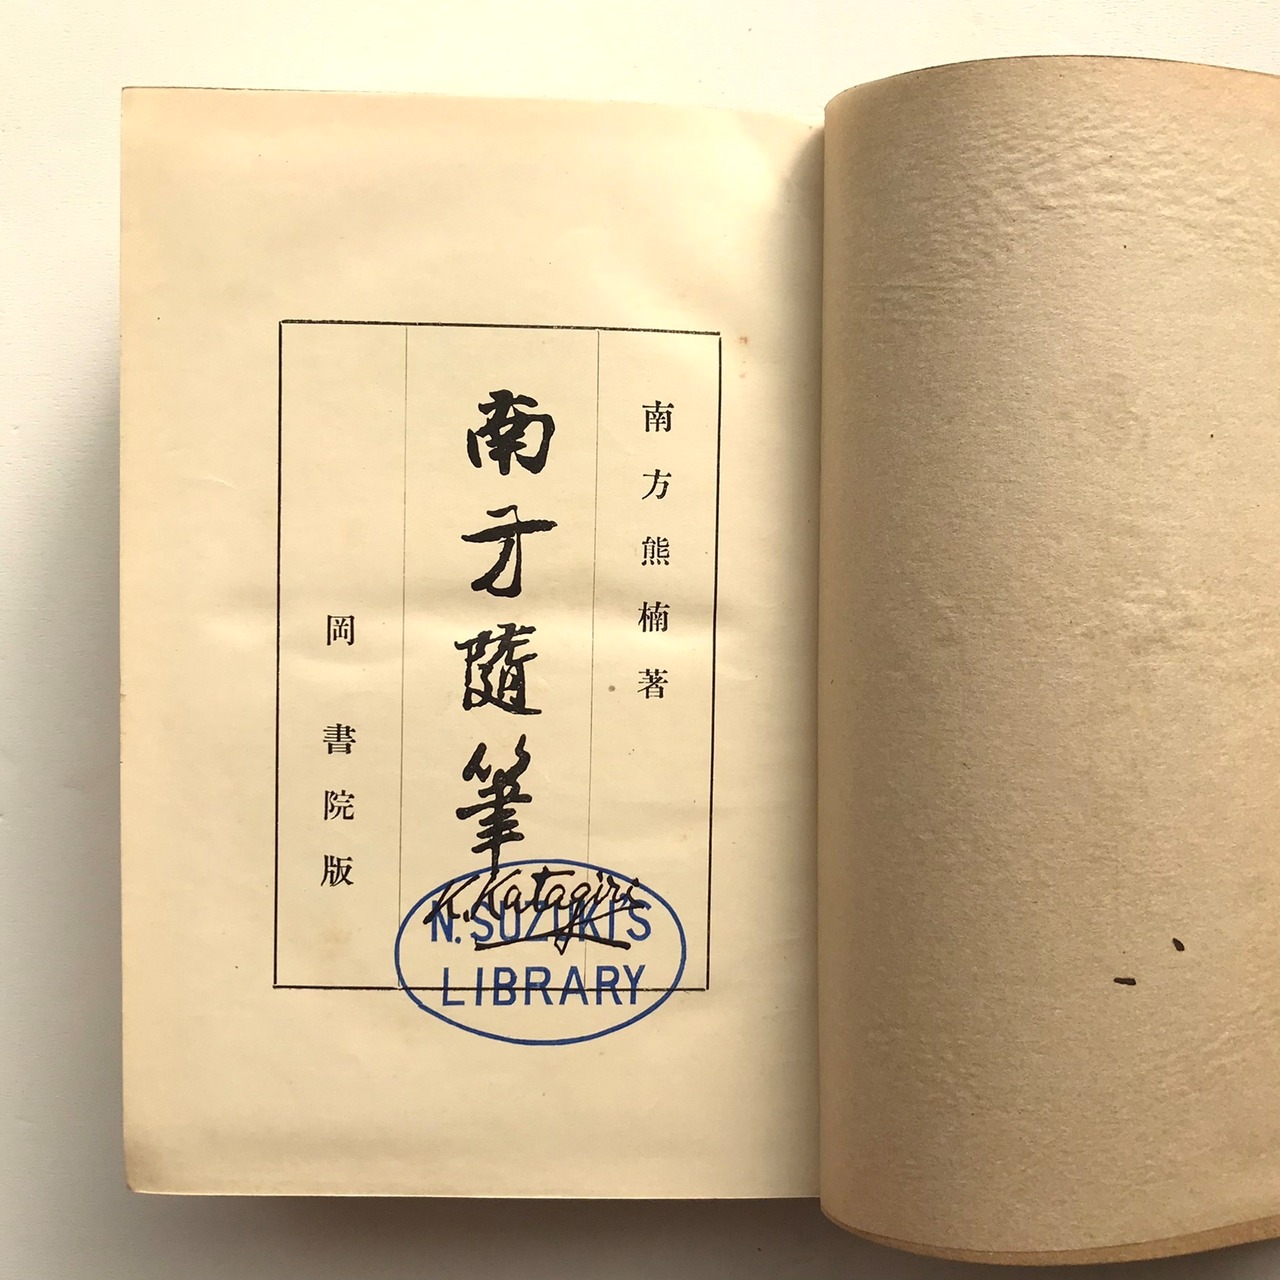 南方熊楠著
南方隨筆
岡書院版
K. Katagiri
N. SUZUKI'S
LIBRARY